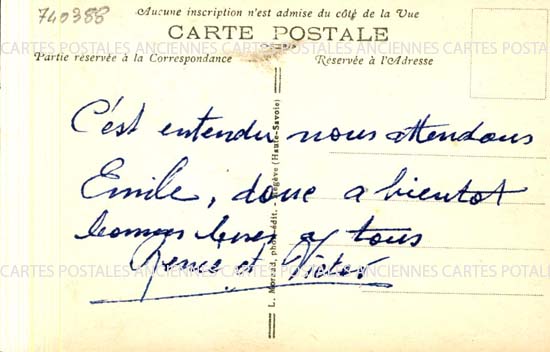 740388
Aucune inscription n'est admise du côté de la Vue
CARTE POSTALE
ANCIENNES CARTES POSTALES ANCIENNES CARTES POSTALES
Partie réservée à la Correspondance
Réservée à l'Adresse
C'est entendu nous attendons
Emile, donc a bientot
bonnes a tous
Renee et Victor
CARTES POSTALES ANCIENNES CARTES POSTALES ANCIENNES CARTES
L. Morand, phot. édit. - Megève (Haute-Savoie)